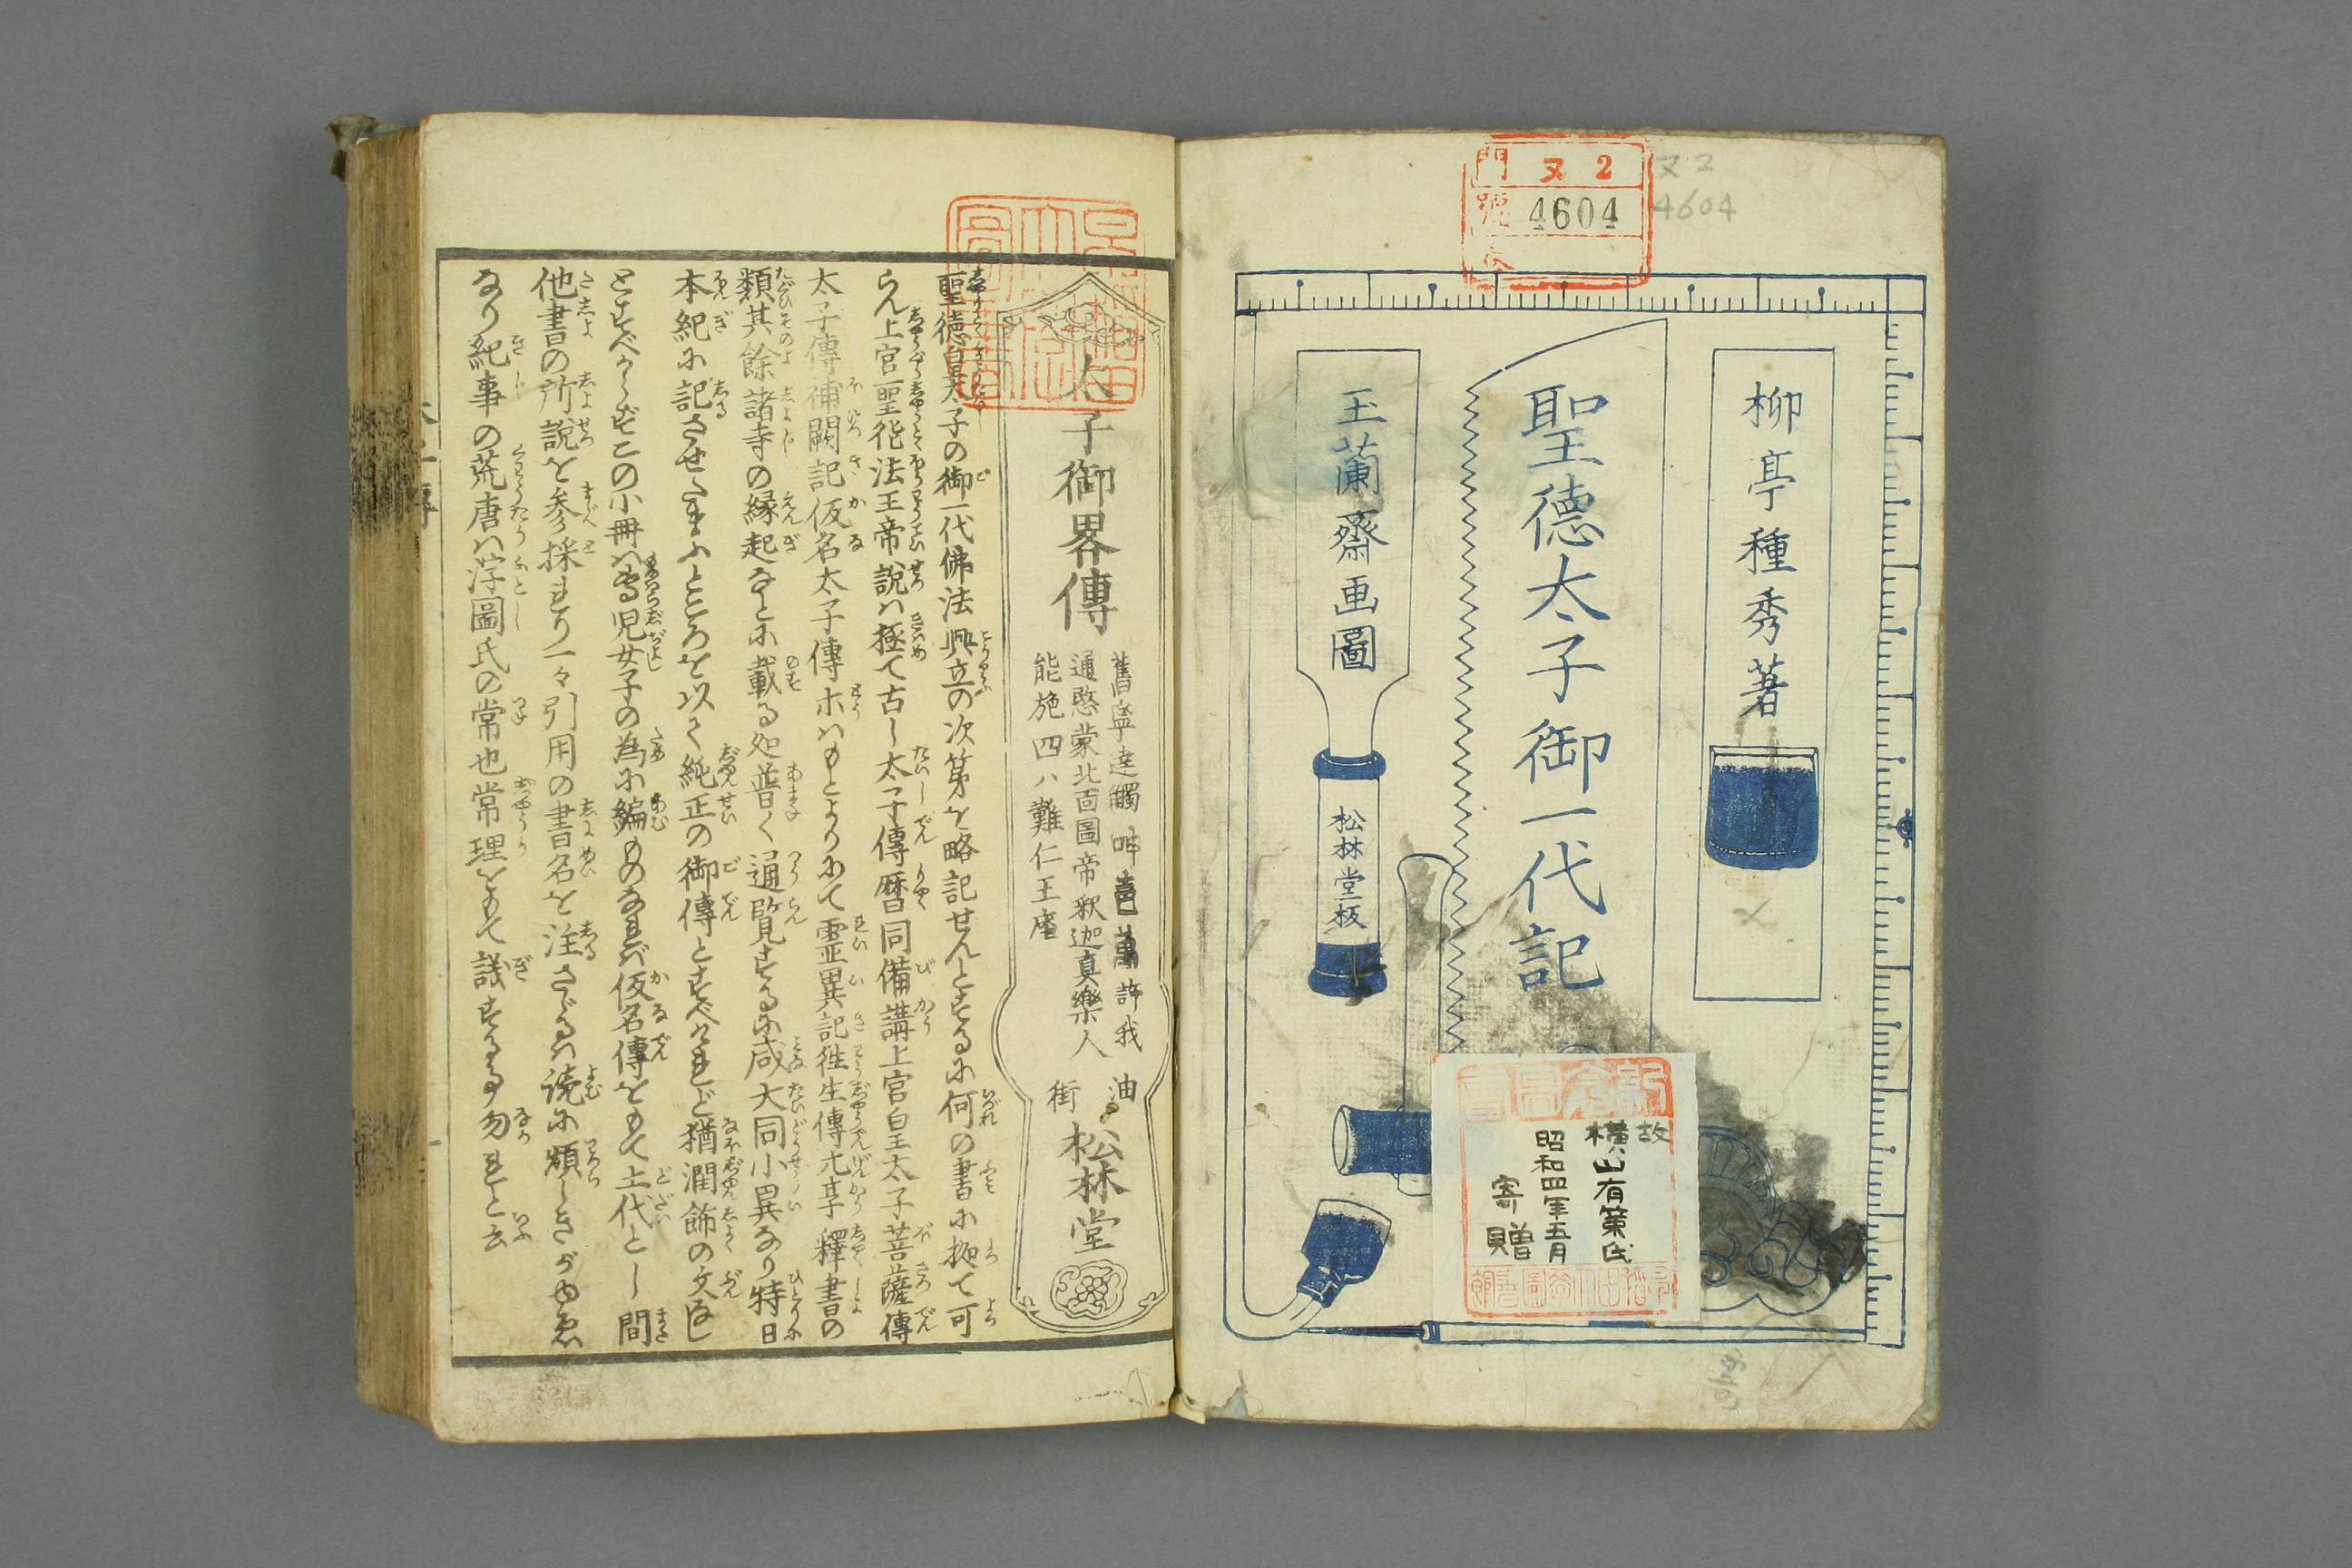 門 ヌ 2
號 4604
ヌ 2
4604
柳亭種秀著
聖德太子御一代記
玉蘭齋画圖
松林堂板
故
横山有策氏
昭和四年五月
寄贈
太子御畧傳
通愍蒙北面圖帝釈迦真樂人
能施四八難仁王座
油
街
松林堂
聖徳皇太子の御一代佛法興立の次第を略記せんとするに何の書に拠て可
らん上宮聖徳法王帝説は極て古し太子傳暦同備講上宮皇太子菩薩傳
太子傳補闕記仮名太子傳ホはもとよりにて霊異記徃生傳元亨釋書の
類其餘諸寺の縁起なとに載る処普く通覧するに咸大同小異なり特日
本紀に記させたまふところを以て純正の御傳とすべけれど猶潤飾の文なし
とすべからずこの小冊は為児女子の為に編ものなれば仮名傳をもて土代とし間
他書の所説を参採れり一々引用の書名を注さゞるは読に煩しきがゆゑ
なり紀事の荒唐は浮圖氏の常也常理をもて議する事勿れと云